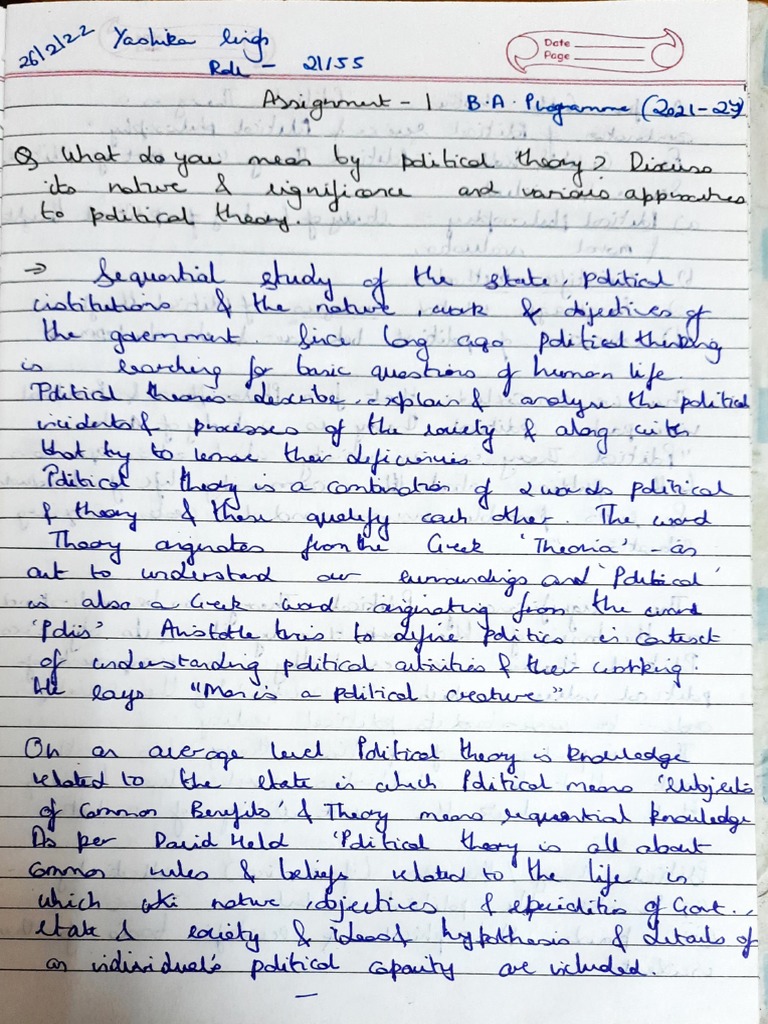 26/2/22 Yashika Singh
Date
Page
Roll - 21/55
Assignment - 1 B.A. Programme (2021-24)
Q What do you mean by political theory? Discuss
its nature & significance and various approaches
to political theory.
→ Sequential study of the state, political
institutions & the nature, work & objectives of
the government. Since long ago political thinking
is searching for basic questions of human life.
Political theories describe, explain & analyse the political
incidents & processes of the society & along with
that try to remove their deficiencies.
Political theory is a combination of 2 words political
& theory & these qualify each other. The word
Theory originates from the Greek 'Theoria' - an
act to understand our surroundings and 'Political'
is also a Greek word originating from the word
'Polis'. Aristotle tries to define politics in context
of understanding political activities & their working.
He says "Man is a political creature"
On an average level Political theory is knowledge
related to the state in which Political means 'subjects
of Common Benefits' & Theory means sequential knowledge
As per David Held 'Political theory is all about
common rules & beliefs related to the life in
which nature, objectives & specialities of Govt.,
state & society & ideas & hypothesis & details of
an individual's political capacity are included.